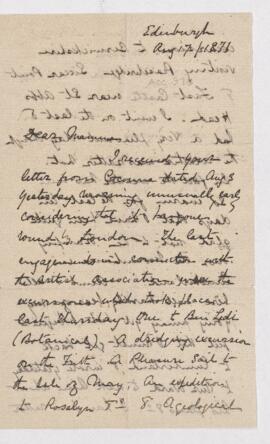 Edinburgh
Aug 17th / 1876
Dear Mamma
I received your
letter from dated Aug 3
Yesterday morning unusually early
considering that it has gone
round by London. The last
engagements in connection with
the British Association were the
excursions which took place
last Thursday. One to Ben Ledi
(Botanical). A dredging excursion
on the Forth. A Pleasure Sail to
the Isle of May. An expedition
to Rosslyn &c. & A geological